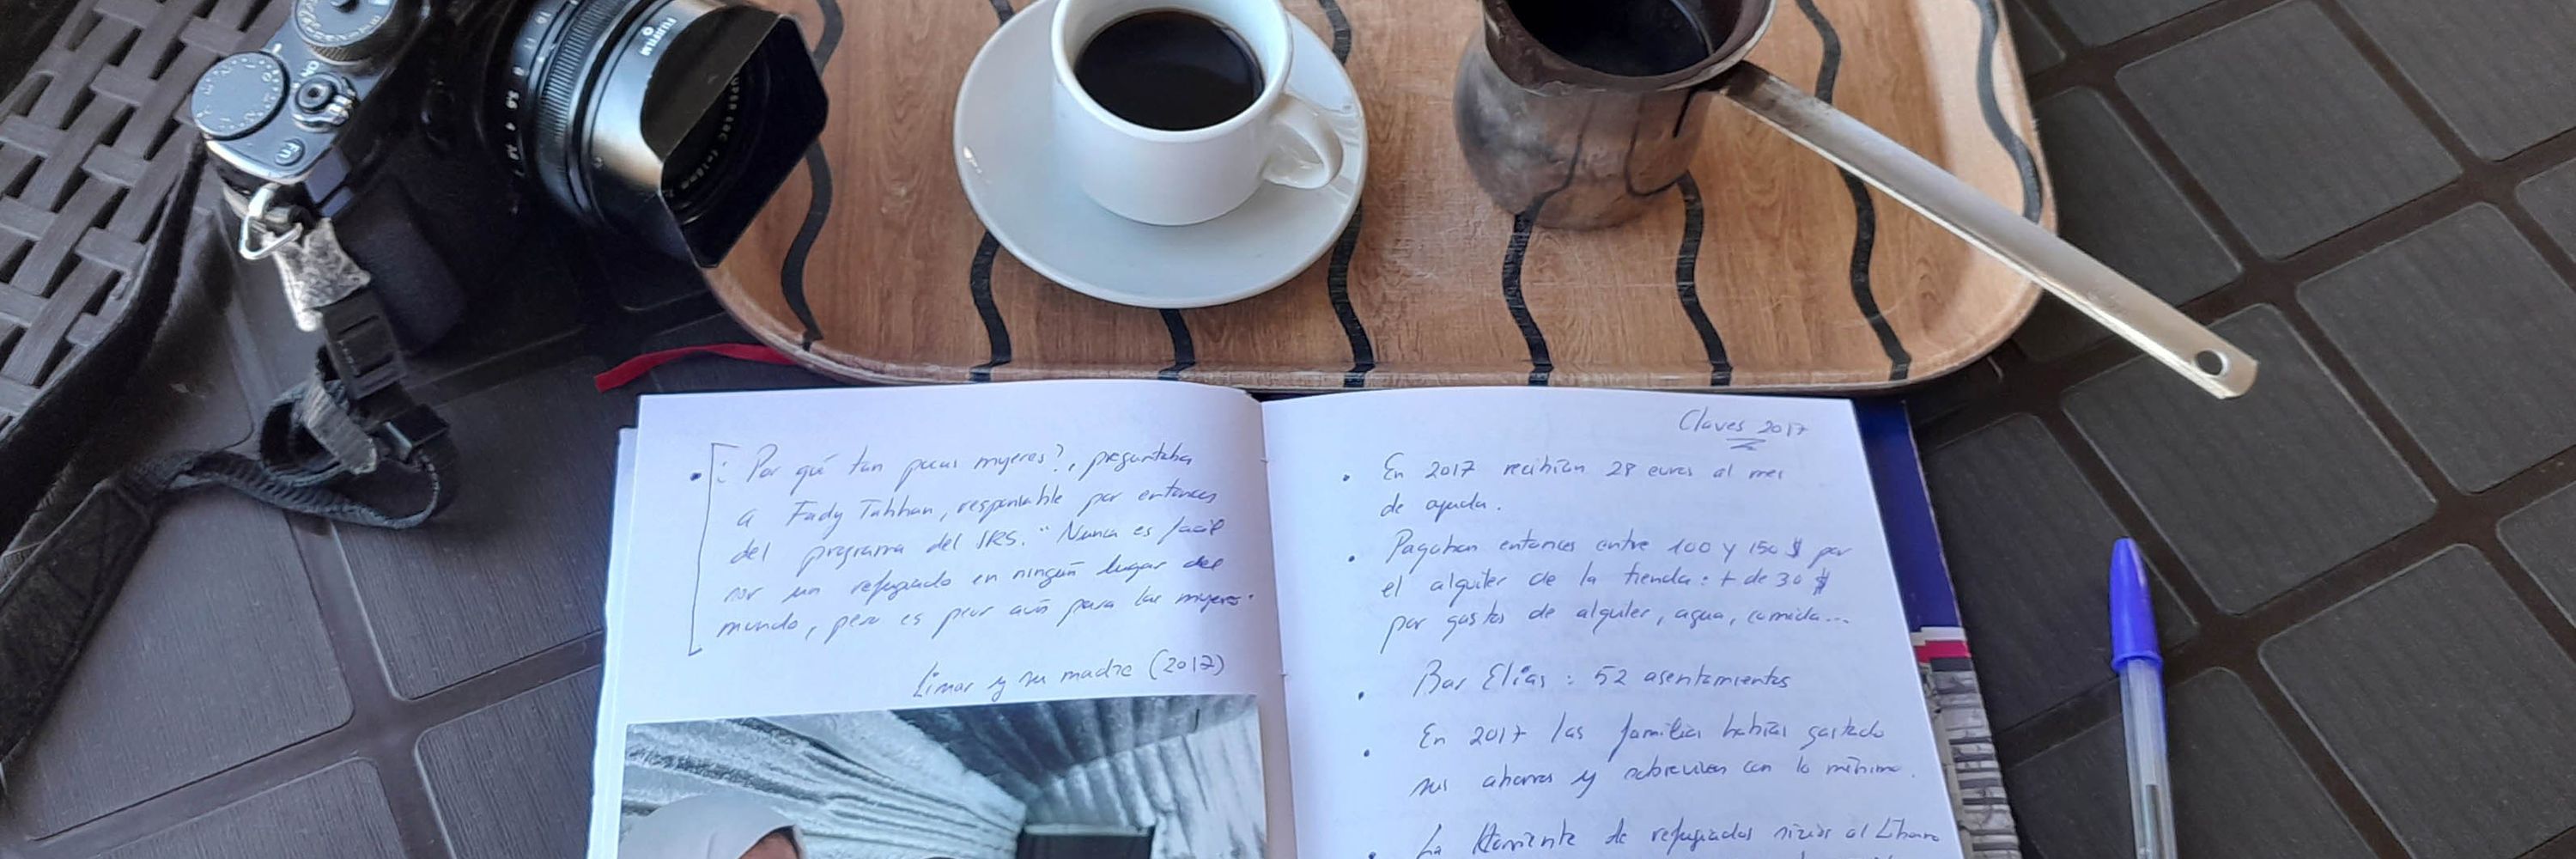 FUJIFILM
SUPER EBC
Fn
¿Por qué tan pocas mujeres?, preguntaba
a Fady Tahhan, responsable por entonces
del programa del IRS. "Nunca es facil
ser un refugiado en ningún lugar del
mundo, pero es peor aún para las mujeres"
Limar y su madre (2017)
Claves 2017
En 2017 recibían 28 euros al mes
de ayuda.
Pagaban entonces entre 100 y 150 $ por
el alquiler de la tienda: + de 30 $
por gastos de alquiler, agua, comida...
Bar Elías : 52 asentamientos
En 2017 las familias habían gastado
sus ahorros y sobreviven con lo mínimo.
La de refugiados sirios al Líbano